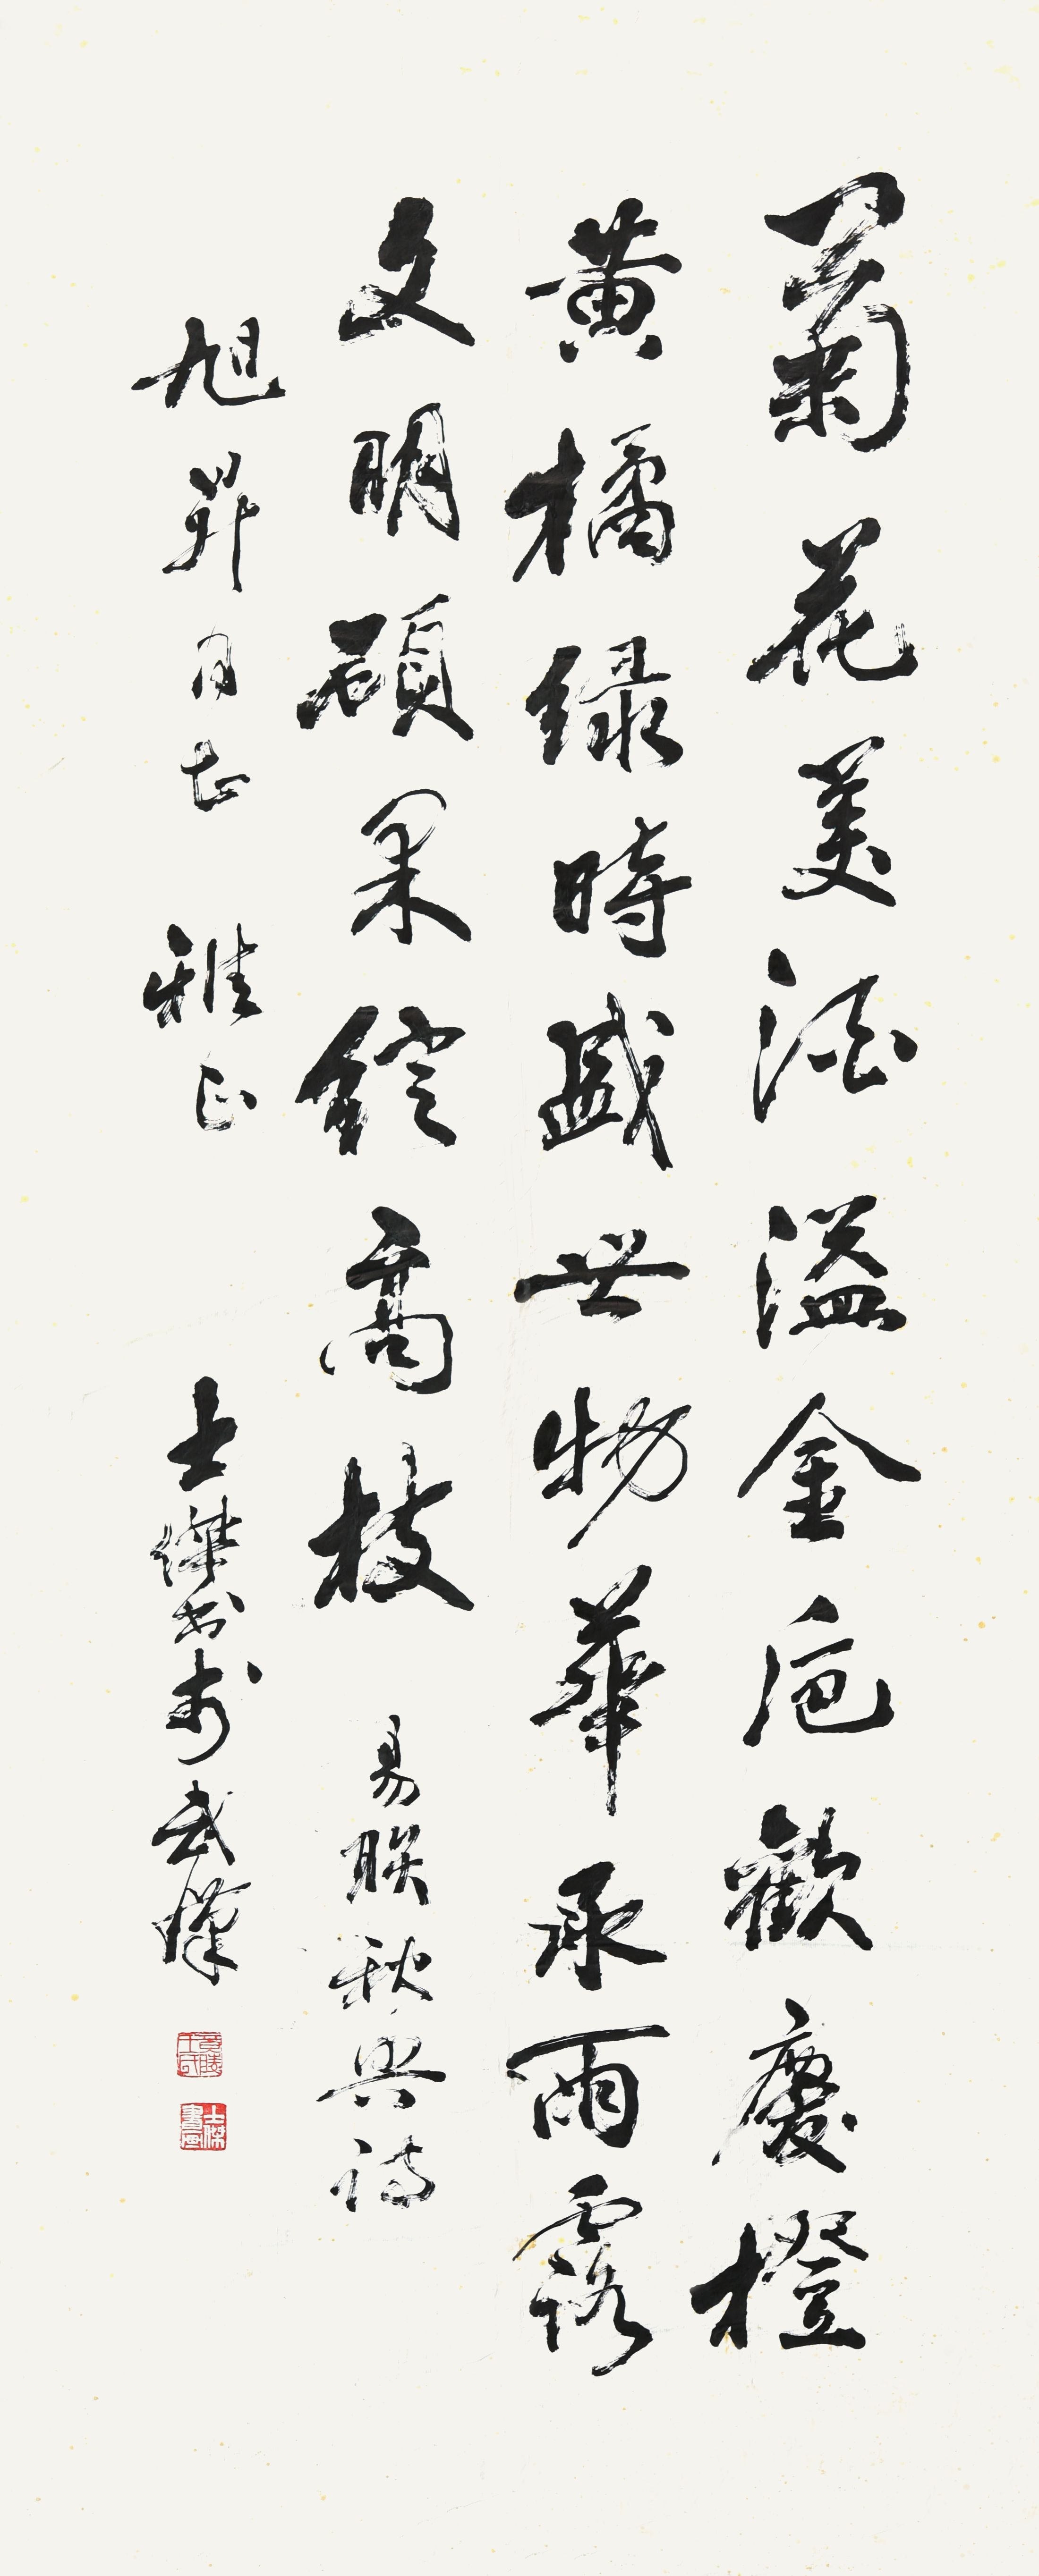 菊花美酒溢金卮歡慶橙
黄橘緑時盛世物華承雨露
文明碩果綻高枝 易 秋興詩
旭昇同志 雅正 士傑書於武漢
士傑書畫